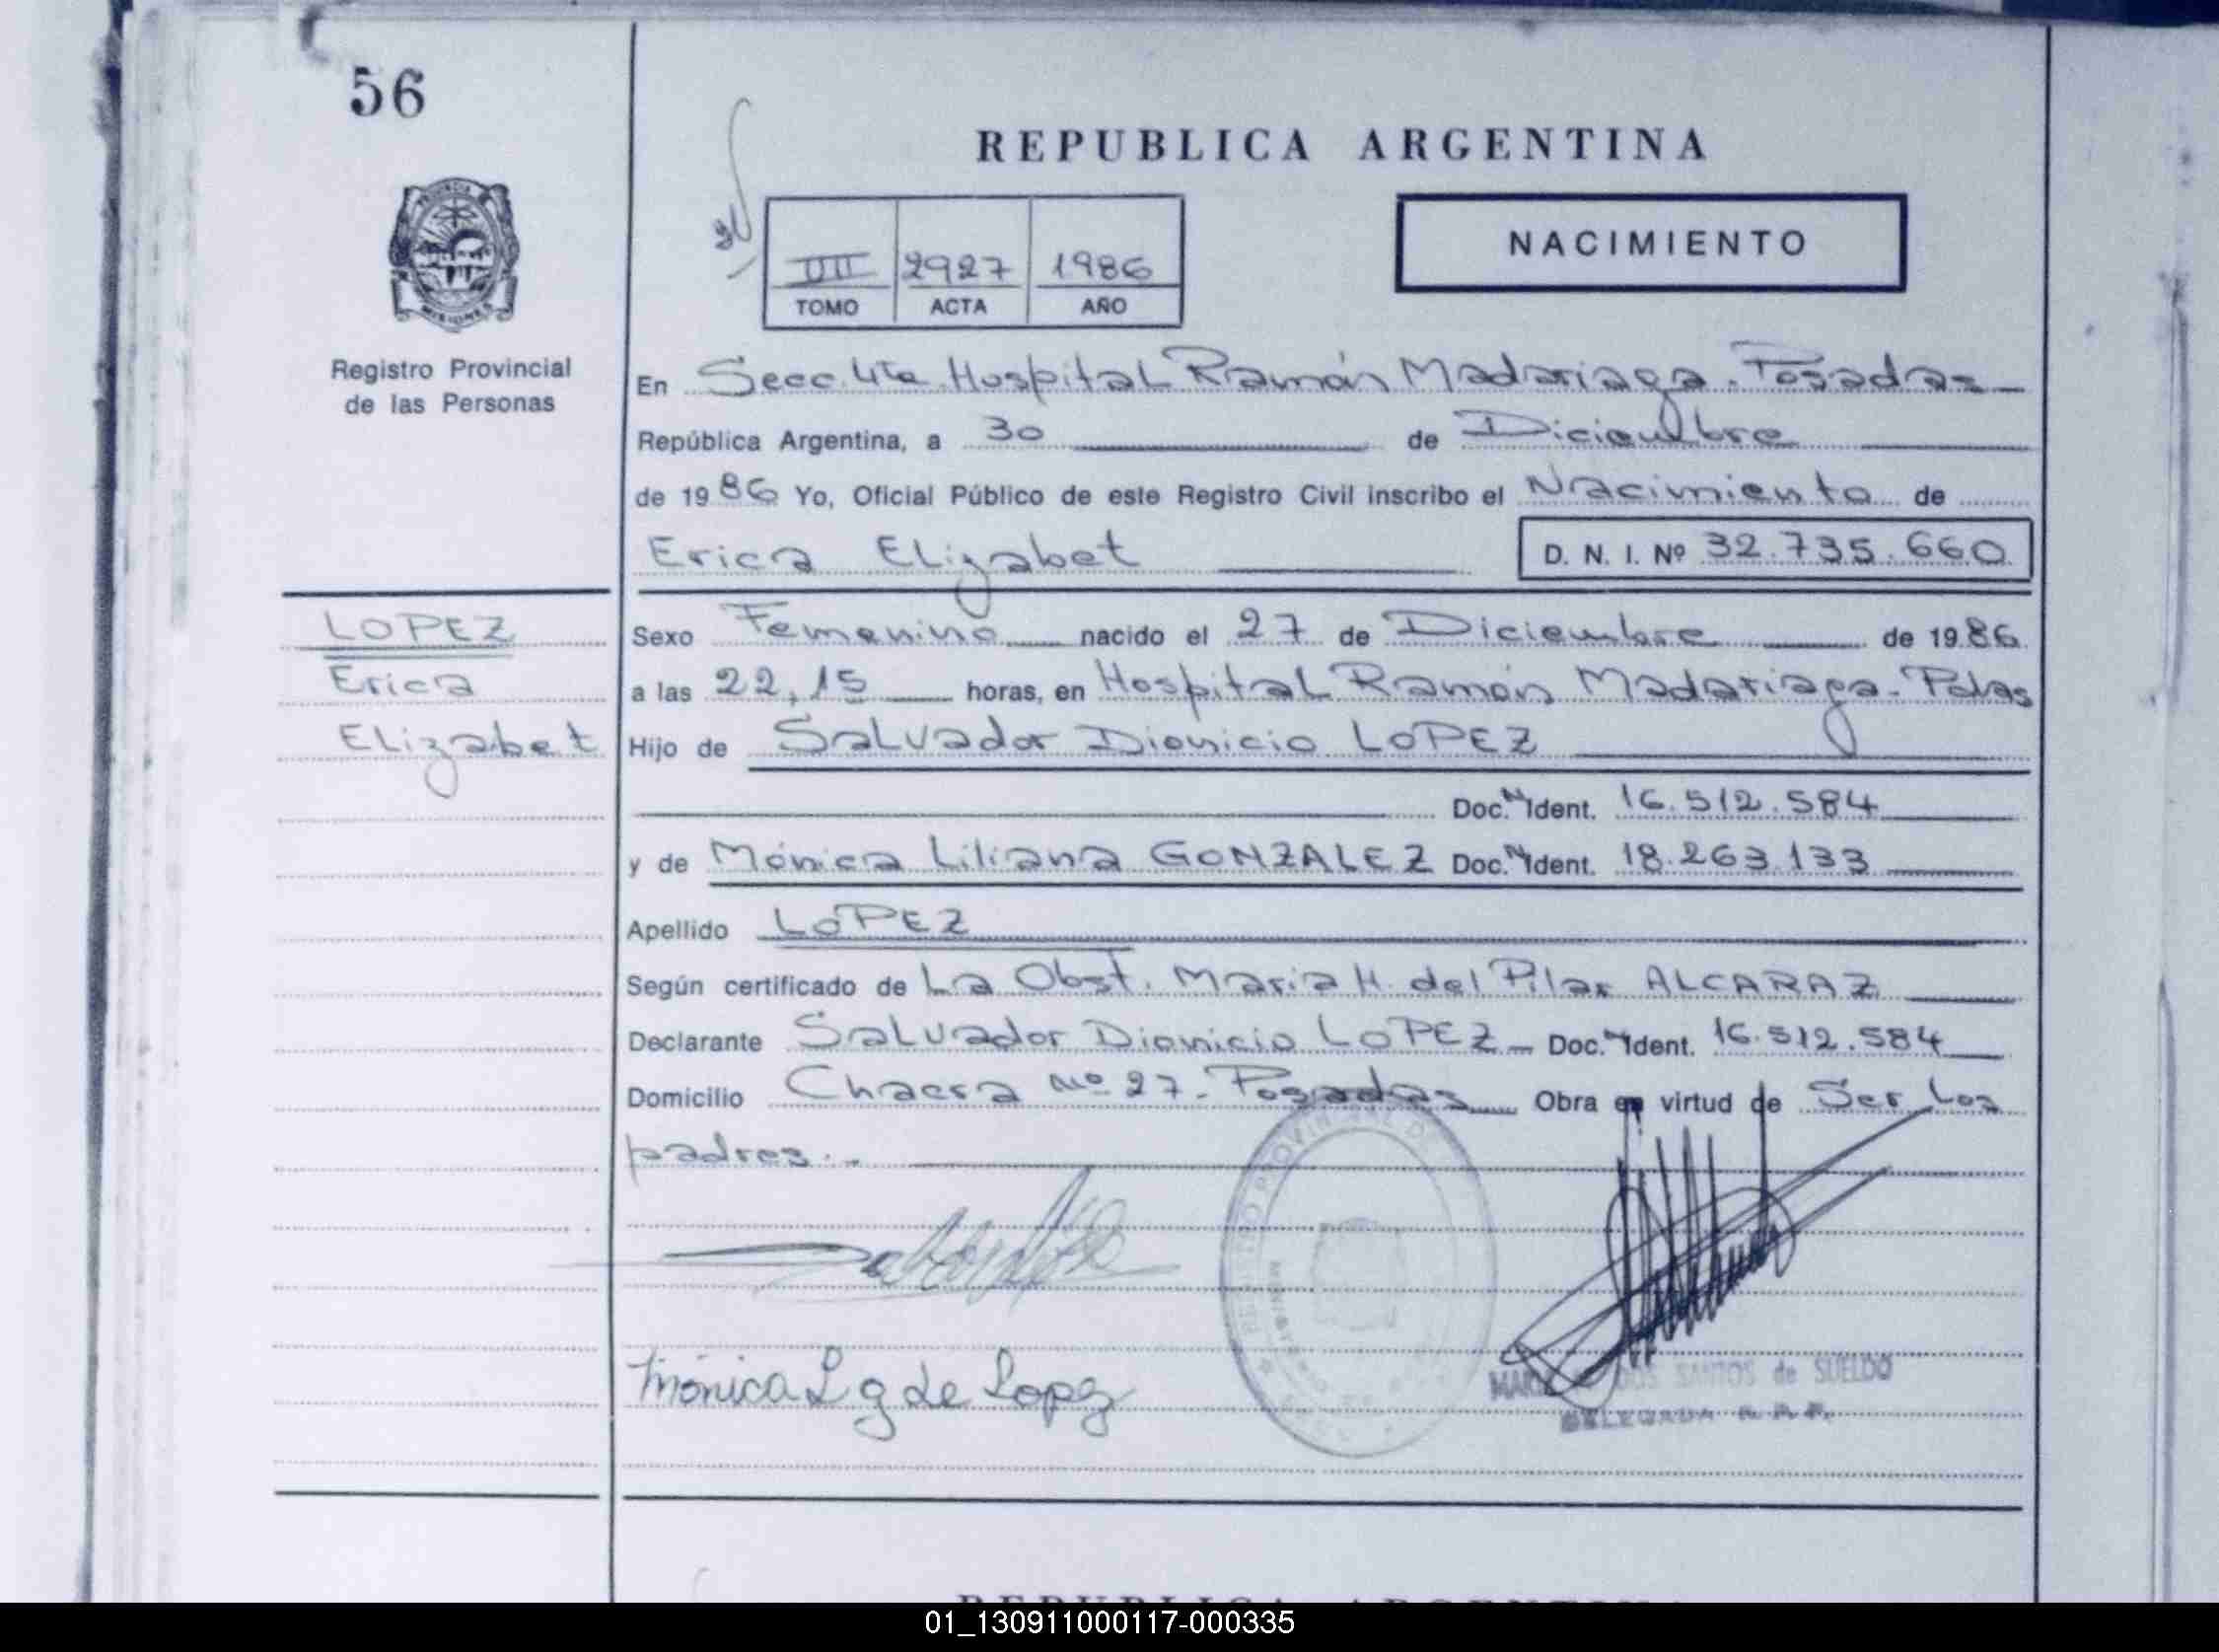 56
REPUBLICA ARGENTINA
PROVINCIA
MISIONES
NACIMIENTO
III 2927 1986
TOMO ACTA AÑO
Registro Provincial
de las Personas
En Secc. 4ta Hospital Ramón Madariaga. Posadas
República Argentina, a 30 de Diciembre
de 1986 Yo, Oficial Público de este Registro Civil inscribo el Nacimiento de
Erica Elizabet D. N. I. Nº 32.735.660
LOPEZ
Erica
Elizabet
Sexo Femenino nacido el 27 de Diciembre de 1986
a las 22,15 horas, en Hospital Ramón Madariaga - Pdas
Hijo de Salvador Dionicio LOPEZ
Doc. N Ident. 16.512.584
y de Mónica Liliana GONZALEZ Doc. N Ident. 18.263.133
Apellido LOPEZ
Según certificado de La Obst. Maria H. del Pilar ALCARAZ
Declarante Salvador Dionicio LOPEZ Doc. N Ident. 16.512.584
Domicilio Chacra Nº 27 - Posadas Obra en virtud de Ser los
padres.
Mónica L g de Lopez
DOS SANTOS de SUELDO
DELEGADA R. P. P.
REPUBLICA ARGENTINA
01_130911000117-000335